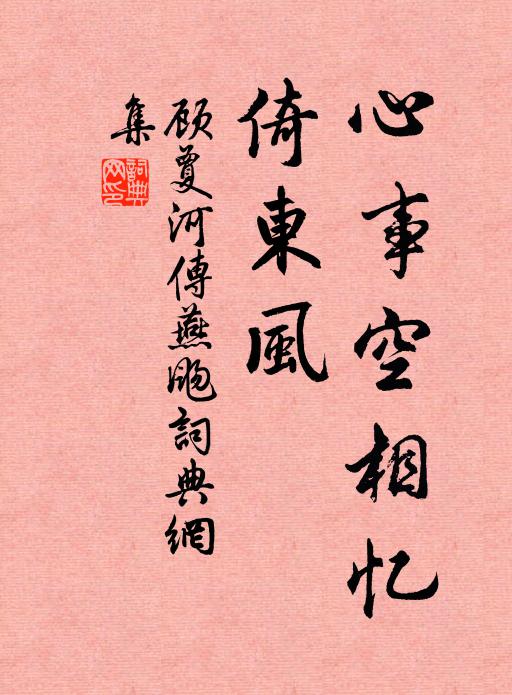 心事空相忆
倚東風
顾夐河傳燕飏詞典網
集
詞典
网印